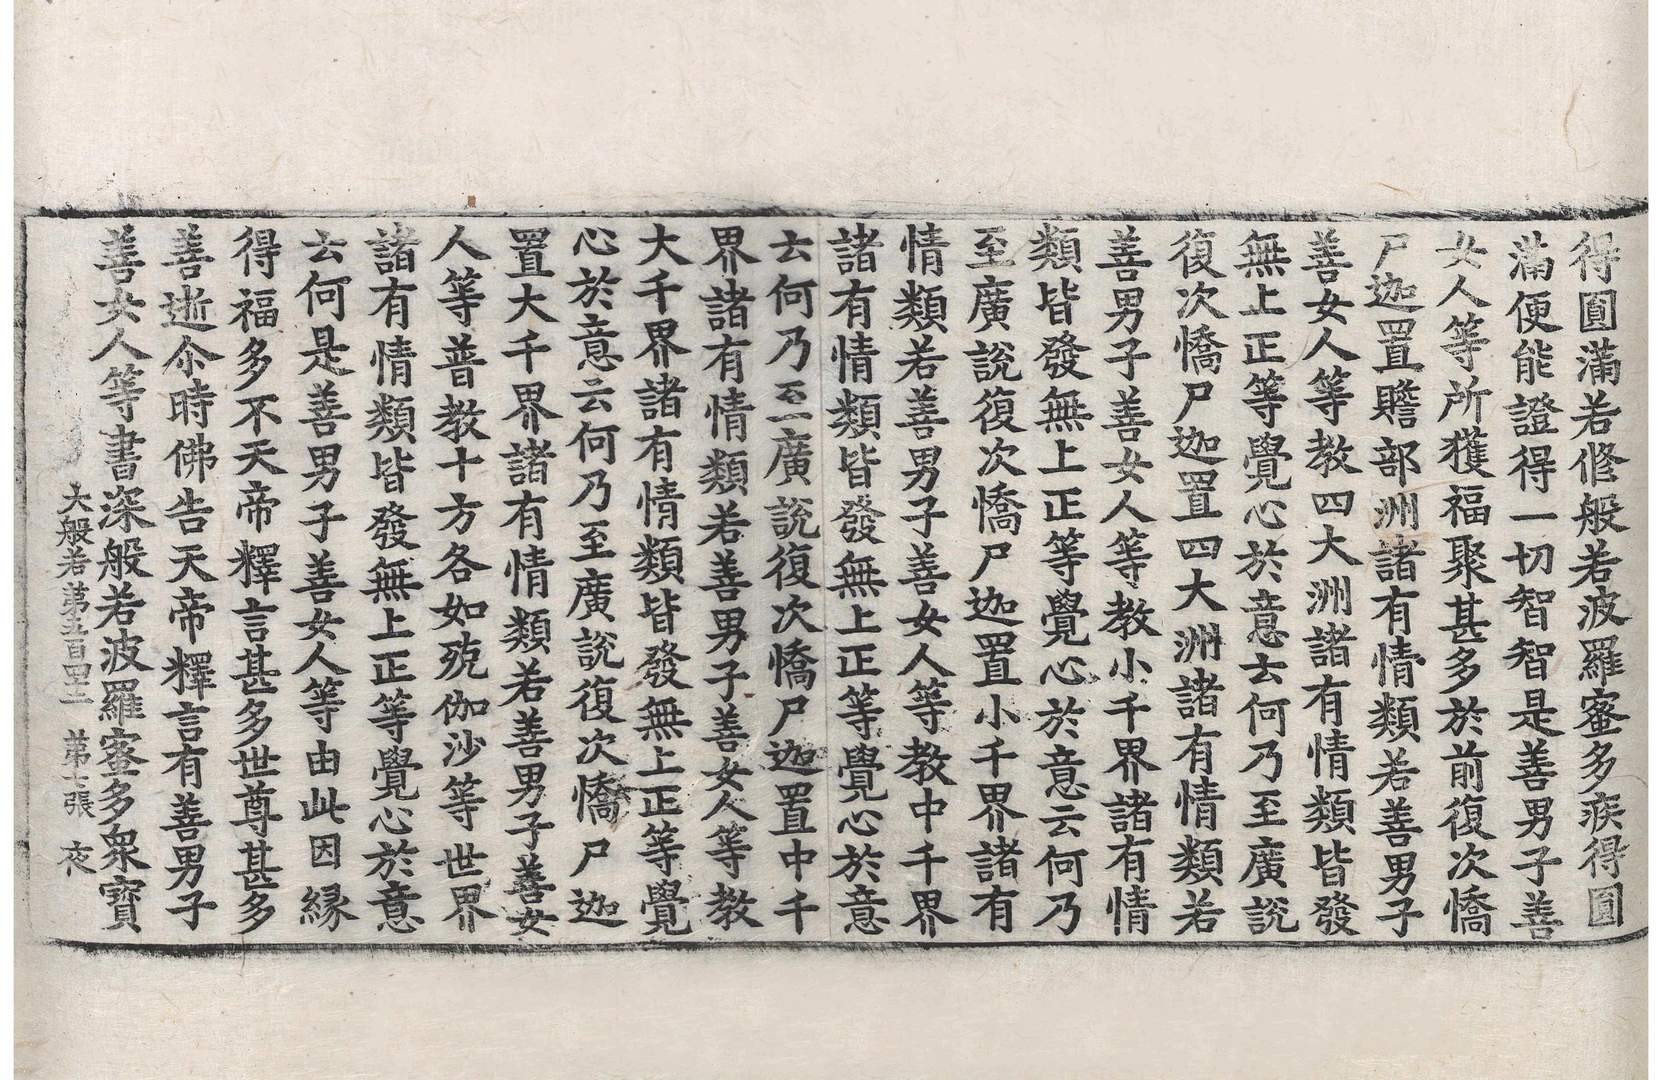 得圓滿若修般若波羅蜜多疾得圓
滿便能證得一切智智是善男子善
女人等所獲福聚甚多於前復次憍
尸迦置贍部洲諸有情類若善男子
善女人等教四大洲諸有情類皆發
無上正等覺心於意云何乃至廣說
復次憍尸迦置四大洲諸有情類若
善男子善女人等教小千界諸有情
類皆發無上正等覺心於意云何乃
至廣說復次憍尸迦置小千界諸有
情類若善男子善女人等教中千界
諸有情類皆發無上正等覺心於意
云何乃至廣說復次憍尸迦置中千
界諸有情類若善男子善女人等教
大千界諸有情類皆發無上正等覺
心於意云何乃至廣說復次憍尸迦
置大千界諸有情類若善男子善女
人等普教十方各如殑伽沙等世界
諸有情類皆發無上正等覺心於意
云何是善男子善女人等由此因緣
得福多不天帝釋言甚多世尊甚多
善逝尒時佛告天帝釋言有善男子
善女人等書深般若波羅蜜多眾寶
大般若第五百四二 第七張 夜